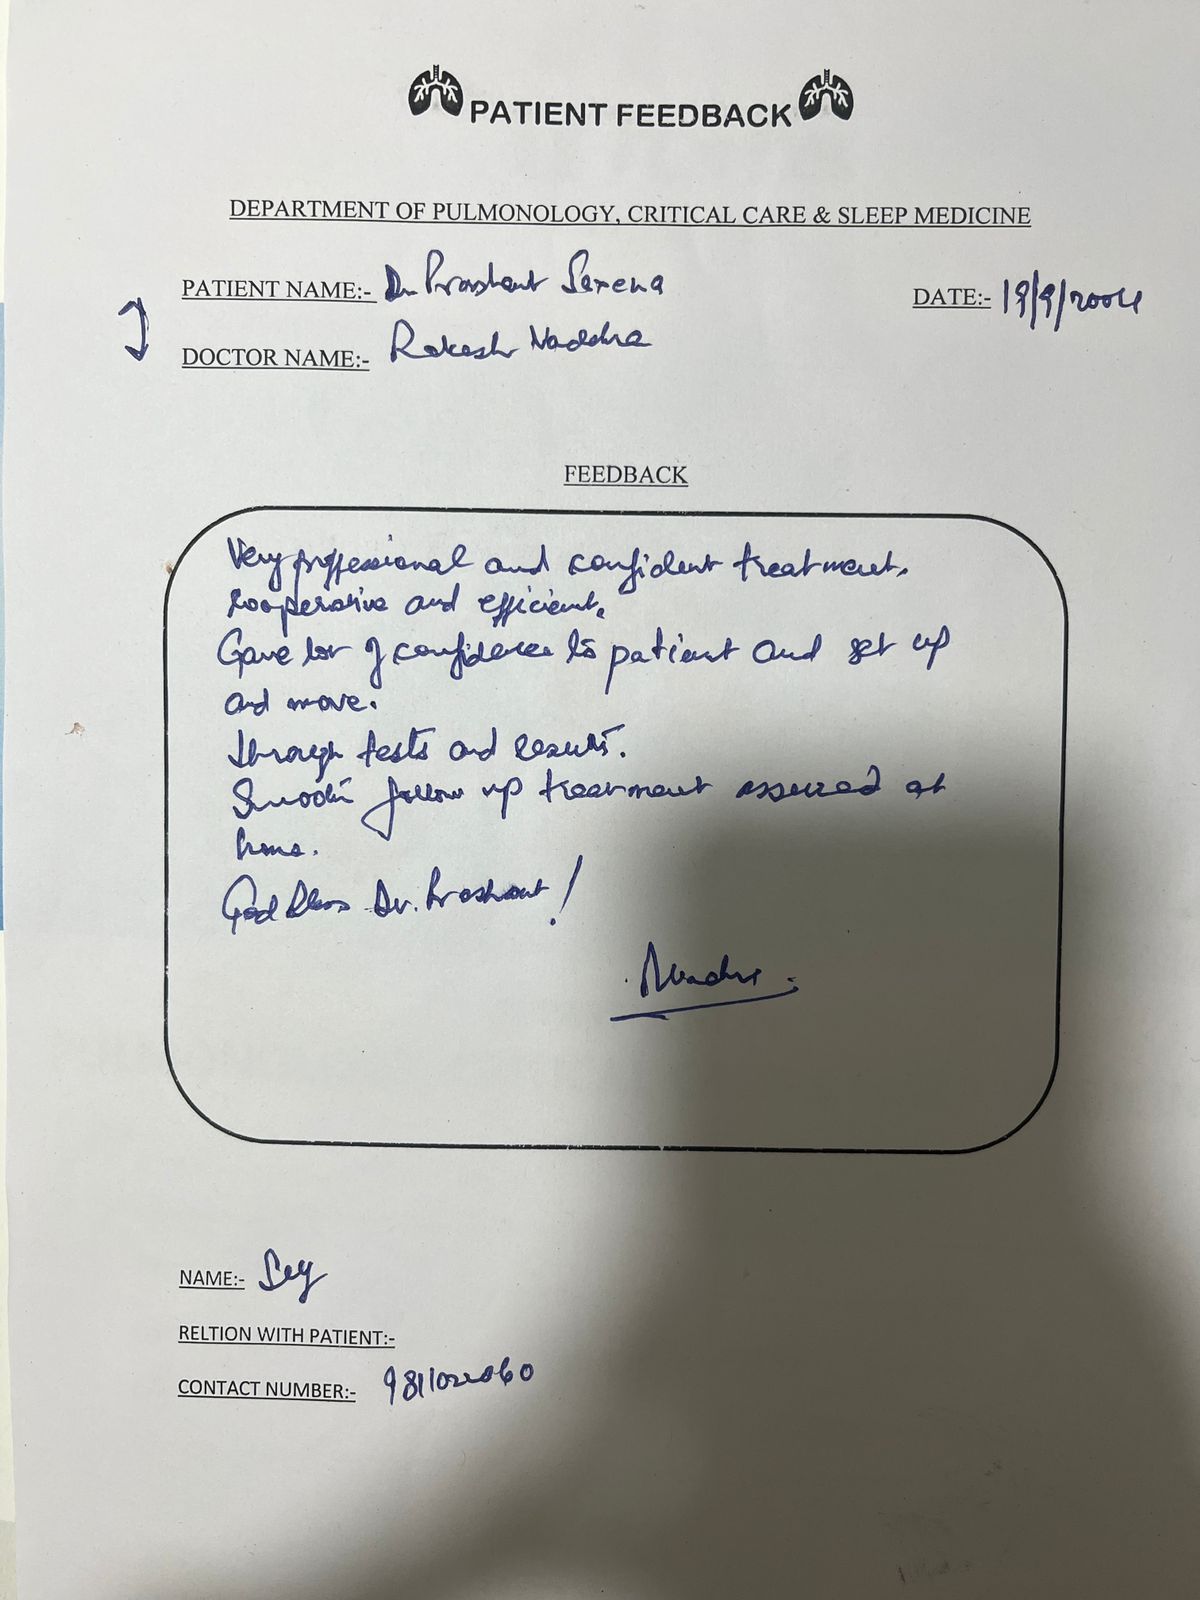 PATIENT FEEDBACK
DEPARTMENT OF PULMONOLOGY, CRITICAL CARE & SLEEP MEDICINE
PATIENT NAME:- Dr Prashant Saxena
DATE:- 19/9/2004
DOCTOR NAME:- Rakesh
FEEDBACK
Very proffessional and confident treatment.
Cooperative and efficient.
Gave lot of confidence to patient and get up
and move.
Through tests and results.
Smooth follow up treatment assured at
home.
God Bless Dr. Prashant!
NAME:- Self
RELTION WITH PATIENT:-
CONTACT NUMBER:-